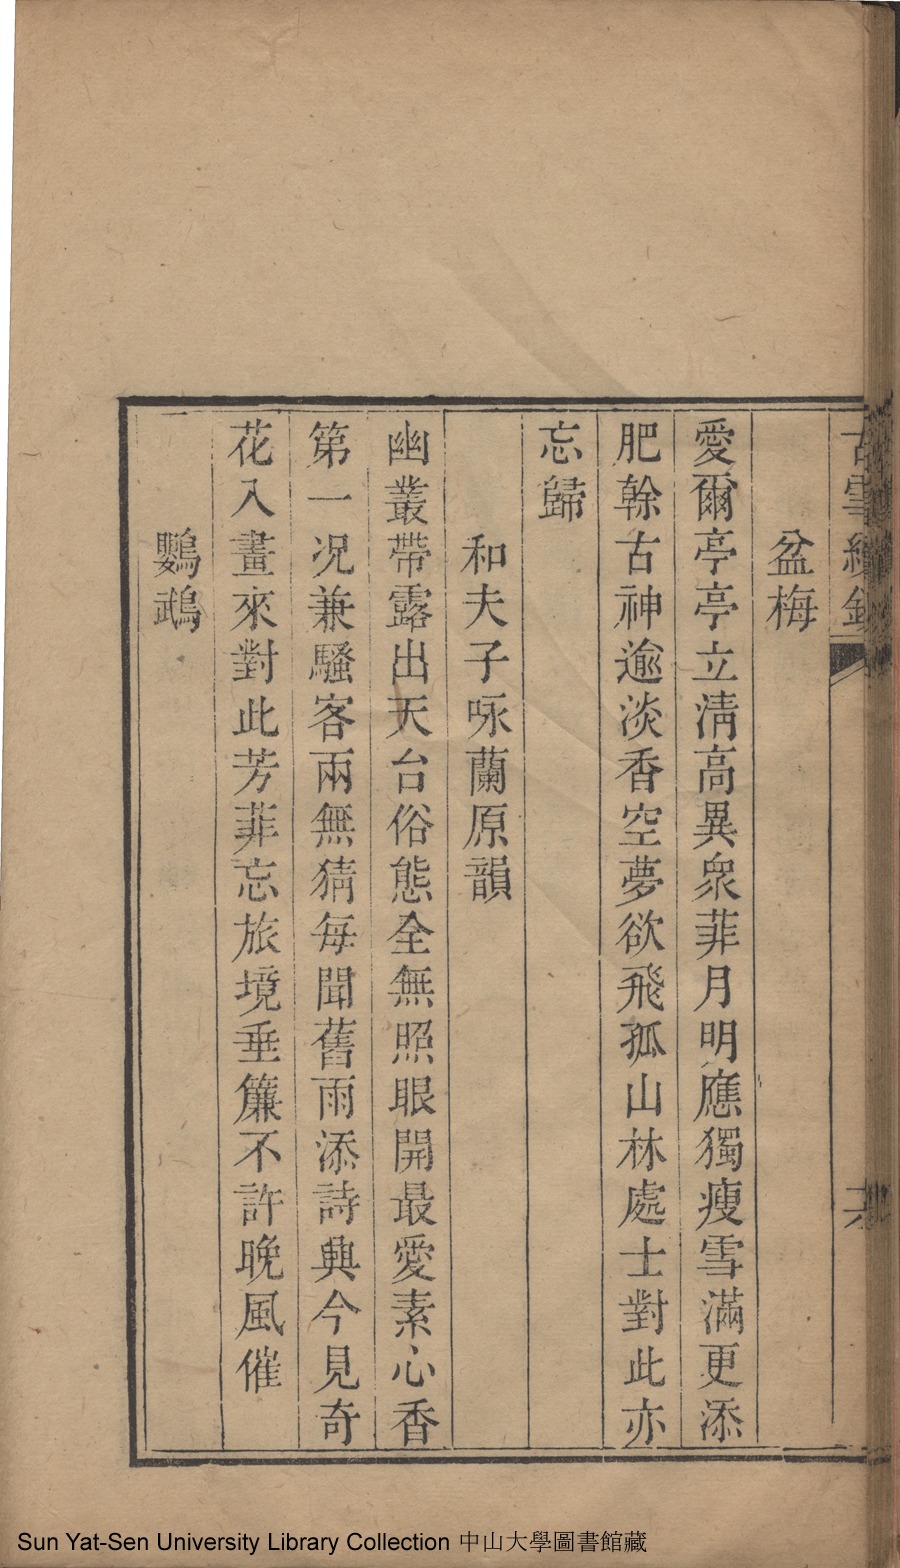 古雪續鈔
六
盆梅
愛爾亭亭立淸高異衆菲月明應獨瘦雪滿更添
肥榦古神逾淡香空夢欲飛孤山林處士對此亦
忘歸
和夫子咏蘭原韻
幽叢帶露出天台俗態全無照眼開最愛素心香
第一况兼騷客兩無猜每聞舊雨添詩興今見奇
花入畫來對此芳菲忘旅境垂簾不許晚風催
鸚鵡
Sun Yat-Sen University Library Collection 中山大學圖書館藏